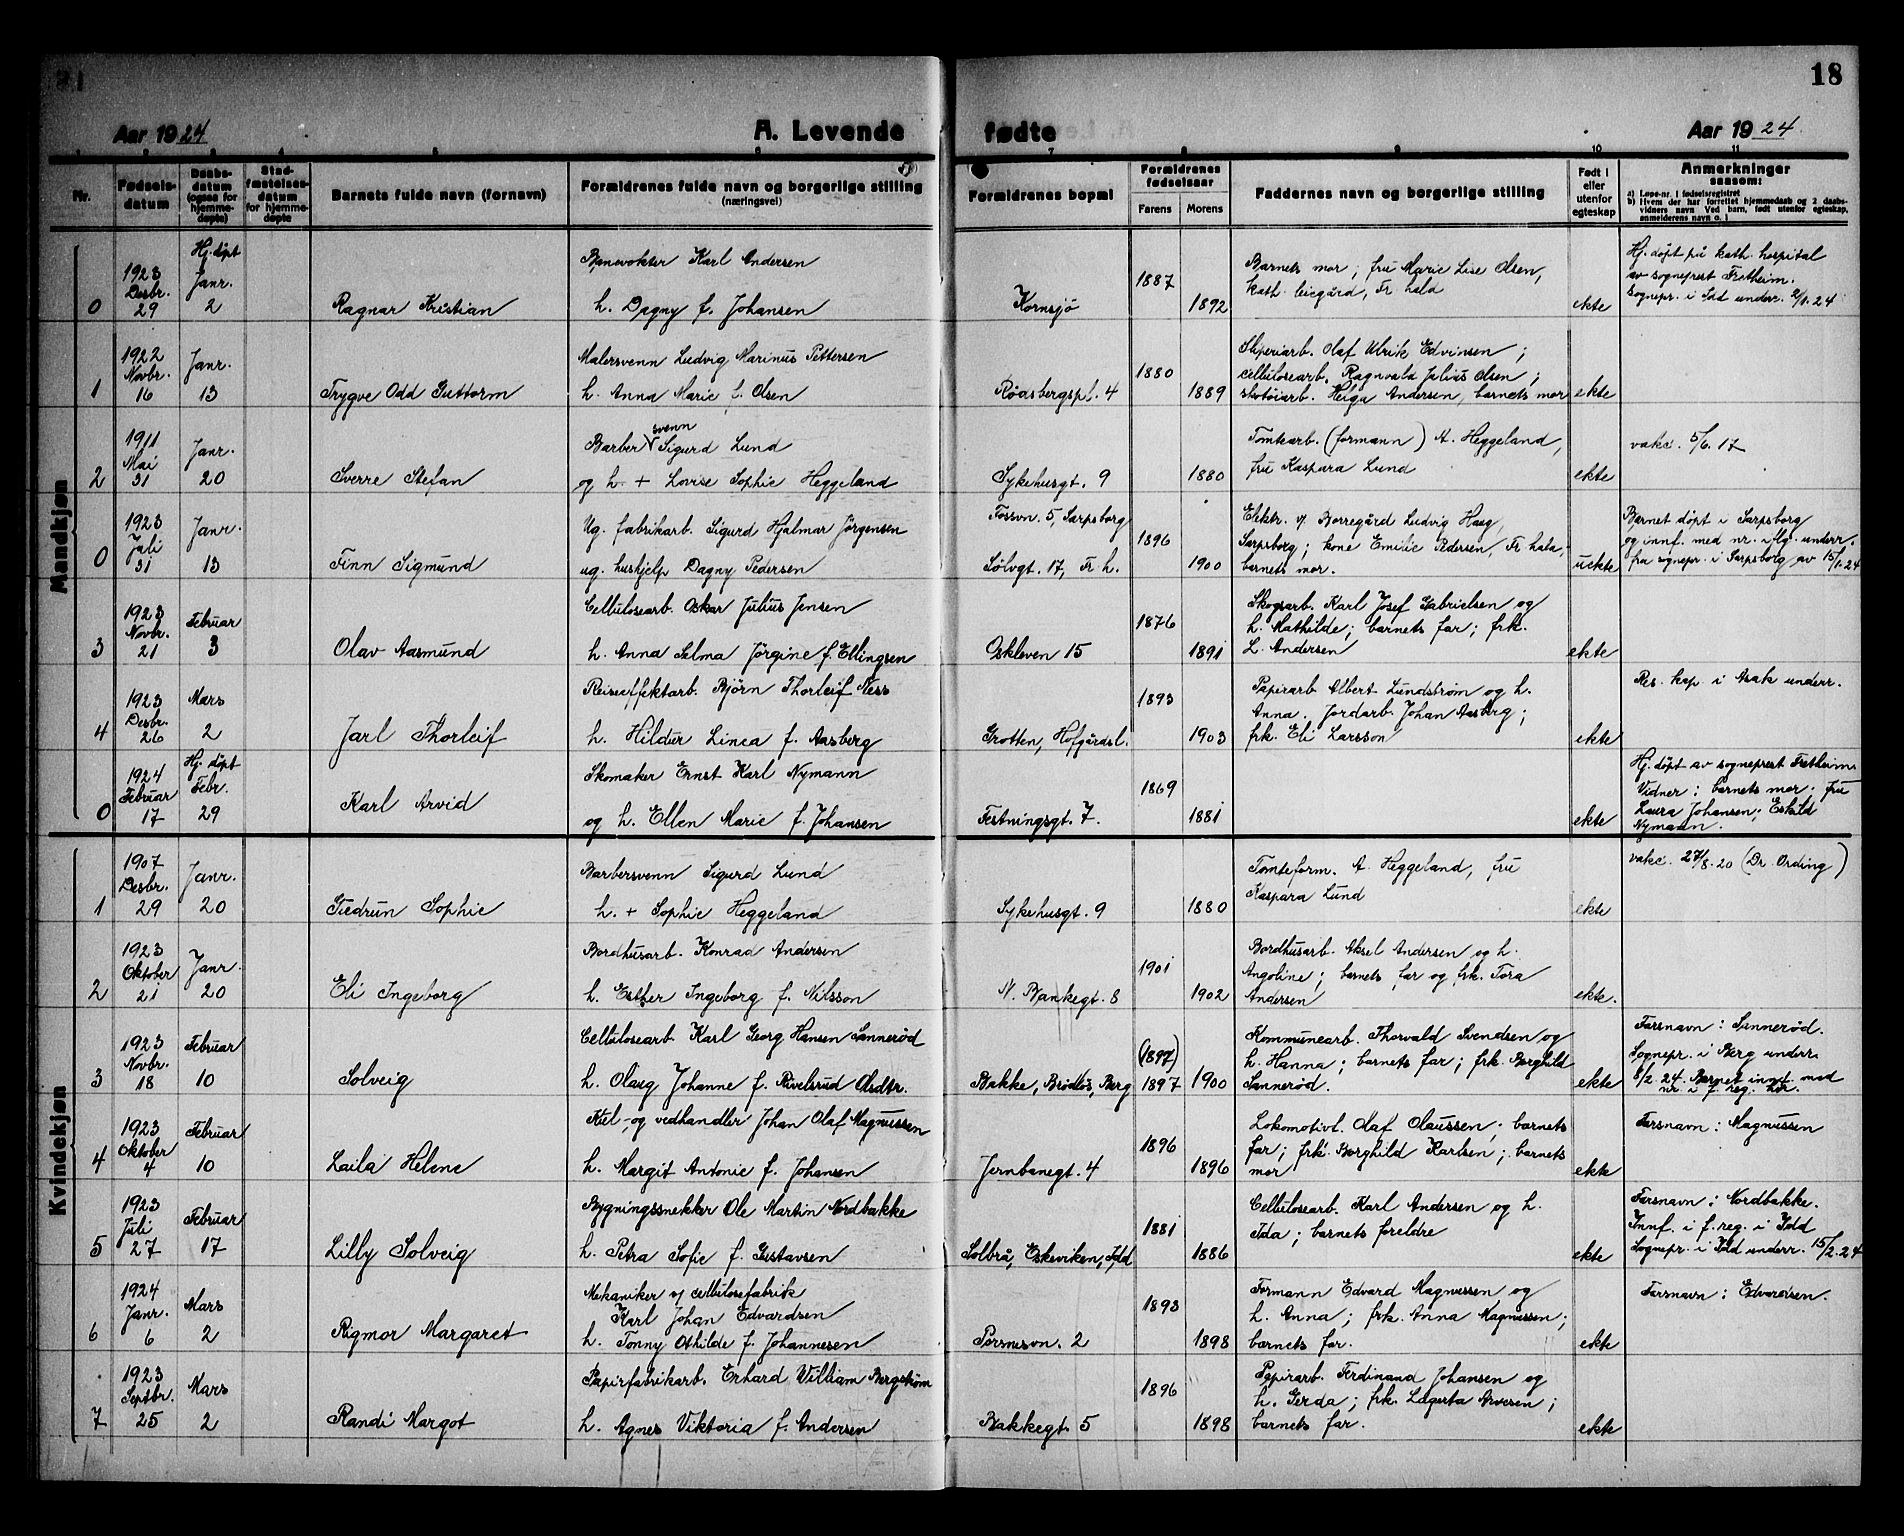 18
Aar 1924 A. Levende fødte Aar 1924
Nr.
Fødselsdatum
Daabsdatum (ogsaa for hjemmedøpte)
Stadfæstelsesdatum for hjemmedøpte
Barnets fulde navn (fornavn)
Forældrenes fulde navn og borgerlige stilling (næringsvei)
Forældrenes bopæl
Forældrenes fødselsaar
Farens Morens
Faddernes navn og borgerlige stilling
Født i eller utenfor egteskap
Anmerkninger saasom:
a) Løpe-nr. i fødselsregistret
b) Hvem der har forrettet hjemmedaab og 2 daabsvidners navn Ved barn, født utenfor egteskap, anmelderens navn o. l
Mandkjøn
0
1923 Desbr. 29
Hj. døpt Janr. 2
Ragnar Kristian
Banevokter Karl Andersen
h. Dagny f. Johansen
Kornsjø
1887
1892
Barnets mor; fru Marie Lise Olsen,
kath. leiegård, Fr.hald
ekte
Hj. døpt på kath. hospital
av sogneprest Fretheim.
Sognepr. i Idd underr. 2/1.24
1
1922 Novbr. 16
Janr. 13
Trygve Odd Guttorm
Malersvenn Ludvig Marinus Pettersen
h. Anna Marie f. Olsen
Røasbergspl. 4
1880
1889
Sliperiarb. Olaf Ulrik Edvinsen;
cellulosearb. Ragnvald Julius Olsen;
skotøiarb. Helga Andersen, barnets mor
ekte
2
1911 Mai 31
Janr. 20
Sverre Stefan
Barbersvenn Sigurd Lund
og h. + Lovise Sophie Heggeland
Sykehusgt. 9
1880
Tomtearb. (formann) A. Heggeland,
fru Kaspara Lund
ekte
vakc. 5/6.17
0
1923 Juli 31
Janr. 13
Finn Sigmund
Ug. fabrikarb. Sigurd Hjalmar Jörgensen
ug. hushjelp Dagny Pedersen
Fossvn. 5, Sarpsborg
Sølvgt. 17, Fr.h.
1896
1900
Elektr. v/ Borregård Ludvig Haag,
Sarpsborg; kone Emilie Pedersen, Fr.hald,
barnets mor.
uekte
Barnet døpt i Sarpsborg
og innf. med nr. iflg. underr.
fra sognepr. i Sarpsborg av 15/1.24
3
1923 Novbr. 21
Februar 3
Olav Aasmund
Cellulosearb. Oskar Julius Jensen
h. Anna Selma Jörgine f. Ellingsen
Oskleven 15
1876
1891
Skogsarb. Karl Josef Gabrielsen og
h. Mathilde; barnets far; frk.
L. Andersen
ekte
4
1923 Desbr. 26
Mars 2
Jarl Thorleif
Reiseeffektarb. Bjørn Thorleif Ness
h. Hildur Linea f. Aasberg
Grotten, Hofgårdsl.
1893
1903
Papirarb. Albert Lundstrøm og h.
Anna. Jordarb. Johan Aasberg;
frk. Eli Larsson
ekte
Res. kap. i Asak underr.
0
1924 Februar 17
Hj. døpt Febr. 29
Karl Arvid
Skomaker Ernst Karl Nymann
og h. Ellen Marie f. Johansen
Festningsgt. 7.
1869
1881
ekte
Hj. døpt av sogneprest Fretheim
Vidner: barnets mor; fru
Laura Johansen; Eskild
Nymann.
Kvindekjøn
1
1907 Desbr. 29
Janr. 20
Gudrun Sophie
Barbersvenn Sigurd Lund
h. + Sophie Heggeland
Sykehusgt. 9
1880
Tomteform. A. Heggeland, fru
Kaspara Lund
ekte
vakc. 27/8.20 (Dr. Ording)
2
1923 Oktober 21
Janr. 20
Eli Ingeborg
Bordhusarb. Konrad Andersen
h. Esther Ingeborg f. Nilsson
N. Bankegt. 8
1901
1902
Bordhusarb. Aksel Andersen og h.
Angoline; barnets far og frk. Tora
Andersen
ekte.
3
1923 Novbr. 18
Februar 10
Solveig
Cellulosearb. Karl Georg Hansen Sannerød
h. Olaug Johanne f. Rivelsrud Olsdtr.
Bakke, Brødløs, Berg
(1897)
1897
1900
Kommunearb. Thorvald Svendsen og
h. Hanna; barnets far; frk. Borghild
Sannerød.
ekte
Farsnavn: Sannerød.
Sognepr. i Berg underr.
8/2.24. Barnet innf. med
nr. i f. reg. her.
4
1923 Oktober 4
Februar 10
Laila Helene
Kul- og vedhandler Johan Olaf Magnussen
h. Margit Antonie f. Johansen
Jernbanegt. 4
1896
1896
Lokomotivl. Olaf Olaussen; barnets
far; frk. Borghild Karlsen; barnets
mor
ekte
Farsnavn: Magnussen
5
1923 Juli 27
Februar 17
Lilly Solveig
Bygningssnekker Ole Martin Nordbakke
h. Petra Sofie f. Gustavsen
Solbrå, Eskeviken, Idd
1881
1886
Cellulosearb. Karl Andersen og h.
Ida; barnets foreldre
ekte
Farsnavn: Nordbakke.
Innf. i f. reg. i Idd
Sognepr. i Idd underr. 15/2.24
6
1924 Janr. 6
Mars 2
Rigmor Margaret
Mekaniker v/ cellulosefabrik
Karl Johan Edvardsen
h. Tonny Othilde f. Johannesen
Porsnesvn. 2
1893
1898
Formann Edvard Magnussen og
h. Anna; frk. Anna Magnussen;
barnets far.
ekte
Farsnavn: Edvardsen.
7
1923 Septbr. 25
Mars 2
Randi Margot
Papirfabrikarb. Erhard William Bergstøm
h. Agnes Viktoria f. Andersen
Bakkegt. 5
1896
1898
Papirarb. Ferdinand Johansen og
h. Gerda; frk. Lagerta Arvesen;
barnets far.
ekte